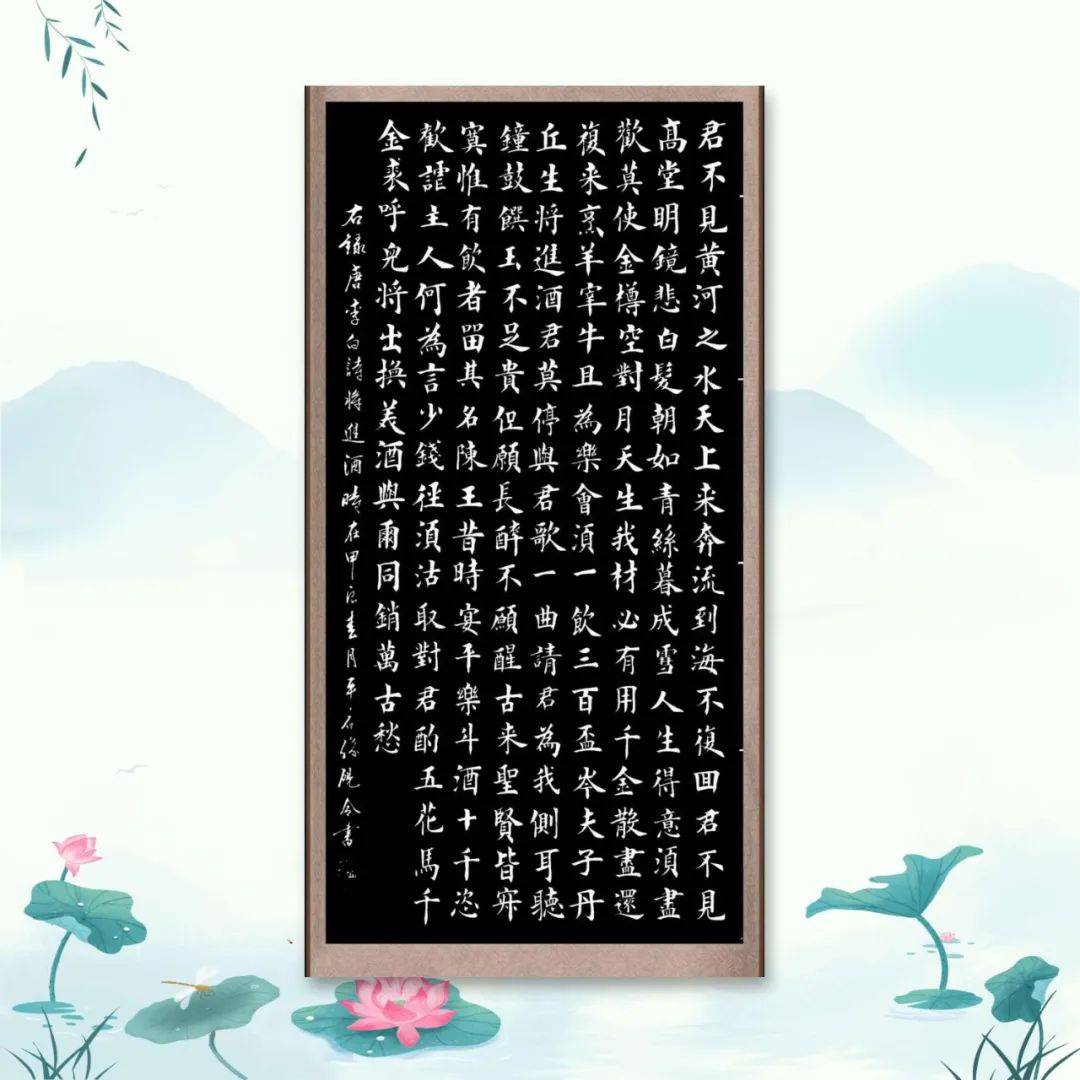 君不見黄河之水天上来奔流到海不復回君不見
髙堂明鏡悲白髮朝如青絲暮成雪人生得意湏盡
歡莫使金樽空對月天生我材必有用千金散盡還
複来烹羊宰牛且為樂會湏一飲三百盃岑夫子丹
丘生将進酒君莫停與君歌一曲請君為我側耳聽
鐘鼓饌玉不足貴但願長醉不願醒古来聖賢皆寂
寞惟有飲者留其名陳王昔時宴平樂斗酒十千恣
歡謔主人何為言少錢徑湏沽取對君酌五花馬千
金裘呼兒将出換美酒與爾同銷萬古愁
右錄唐李白詩将進酒時在甲辰春月平石書